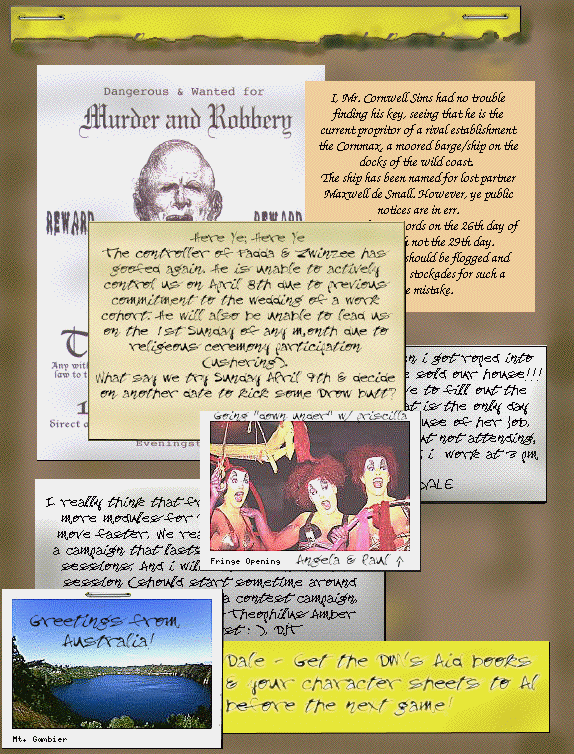 Dangerous & Wanted for
Murder and Robbery
REWARD
REWARD
Any with
law to t
Direct a
Evenings
I, Mr. Cornwell Sims had no trouble
finding his key, seeing that he is the
current propritor of a rival establishment
the Cornmax, a moored barge/ship on the
docks of the wild coast.
The ship has been named for lost partner
Maxwell de Small. However, ye public
notices are in err.
ords on the 26th day of
not the 29th day.
should be flogged and
stockades for such a
e mistake.
Here Ye; Here Ye
The controller of Fadda & Zwinzee has
goofed again. He is unable to actively
control us on April 8th due to previous
commitment to the wedding of a work
cohort. He will also be unable to lead us
on the 1st Sunday of any m,onth due to
religeous ceremony participation
(ushering).
What say we try Sunday April 9th & decide
on another date to kick some Drow butt?
n i got roped into
e sold our house!!!
ve to fill out the
at is the only day
use of her job.
ut not attending.
i work at 3 pm.
DALE
Going "down under" w/ priscilla
Fringe Opening
Angela & Paul ↑
I really think that fr
more modules for
move faster. We rea
a campaign that lasts
sessions. And i wil
session (should start sometime around
a contest campaign.
- Theophilus Amber
st : ). DJT
Greetings from
Australia!
Mt. Gambier
Dale - Get the DM's Aid books
& your character sheets to Al
before the next game!